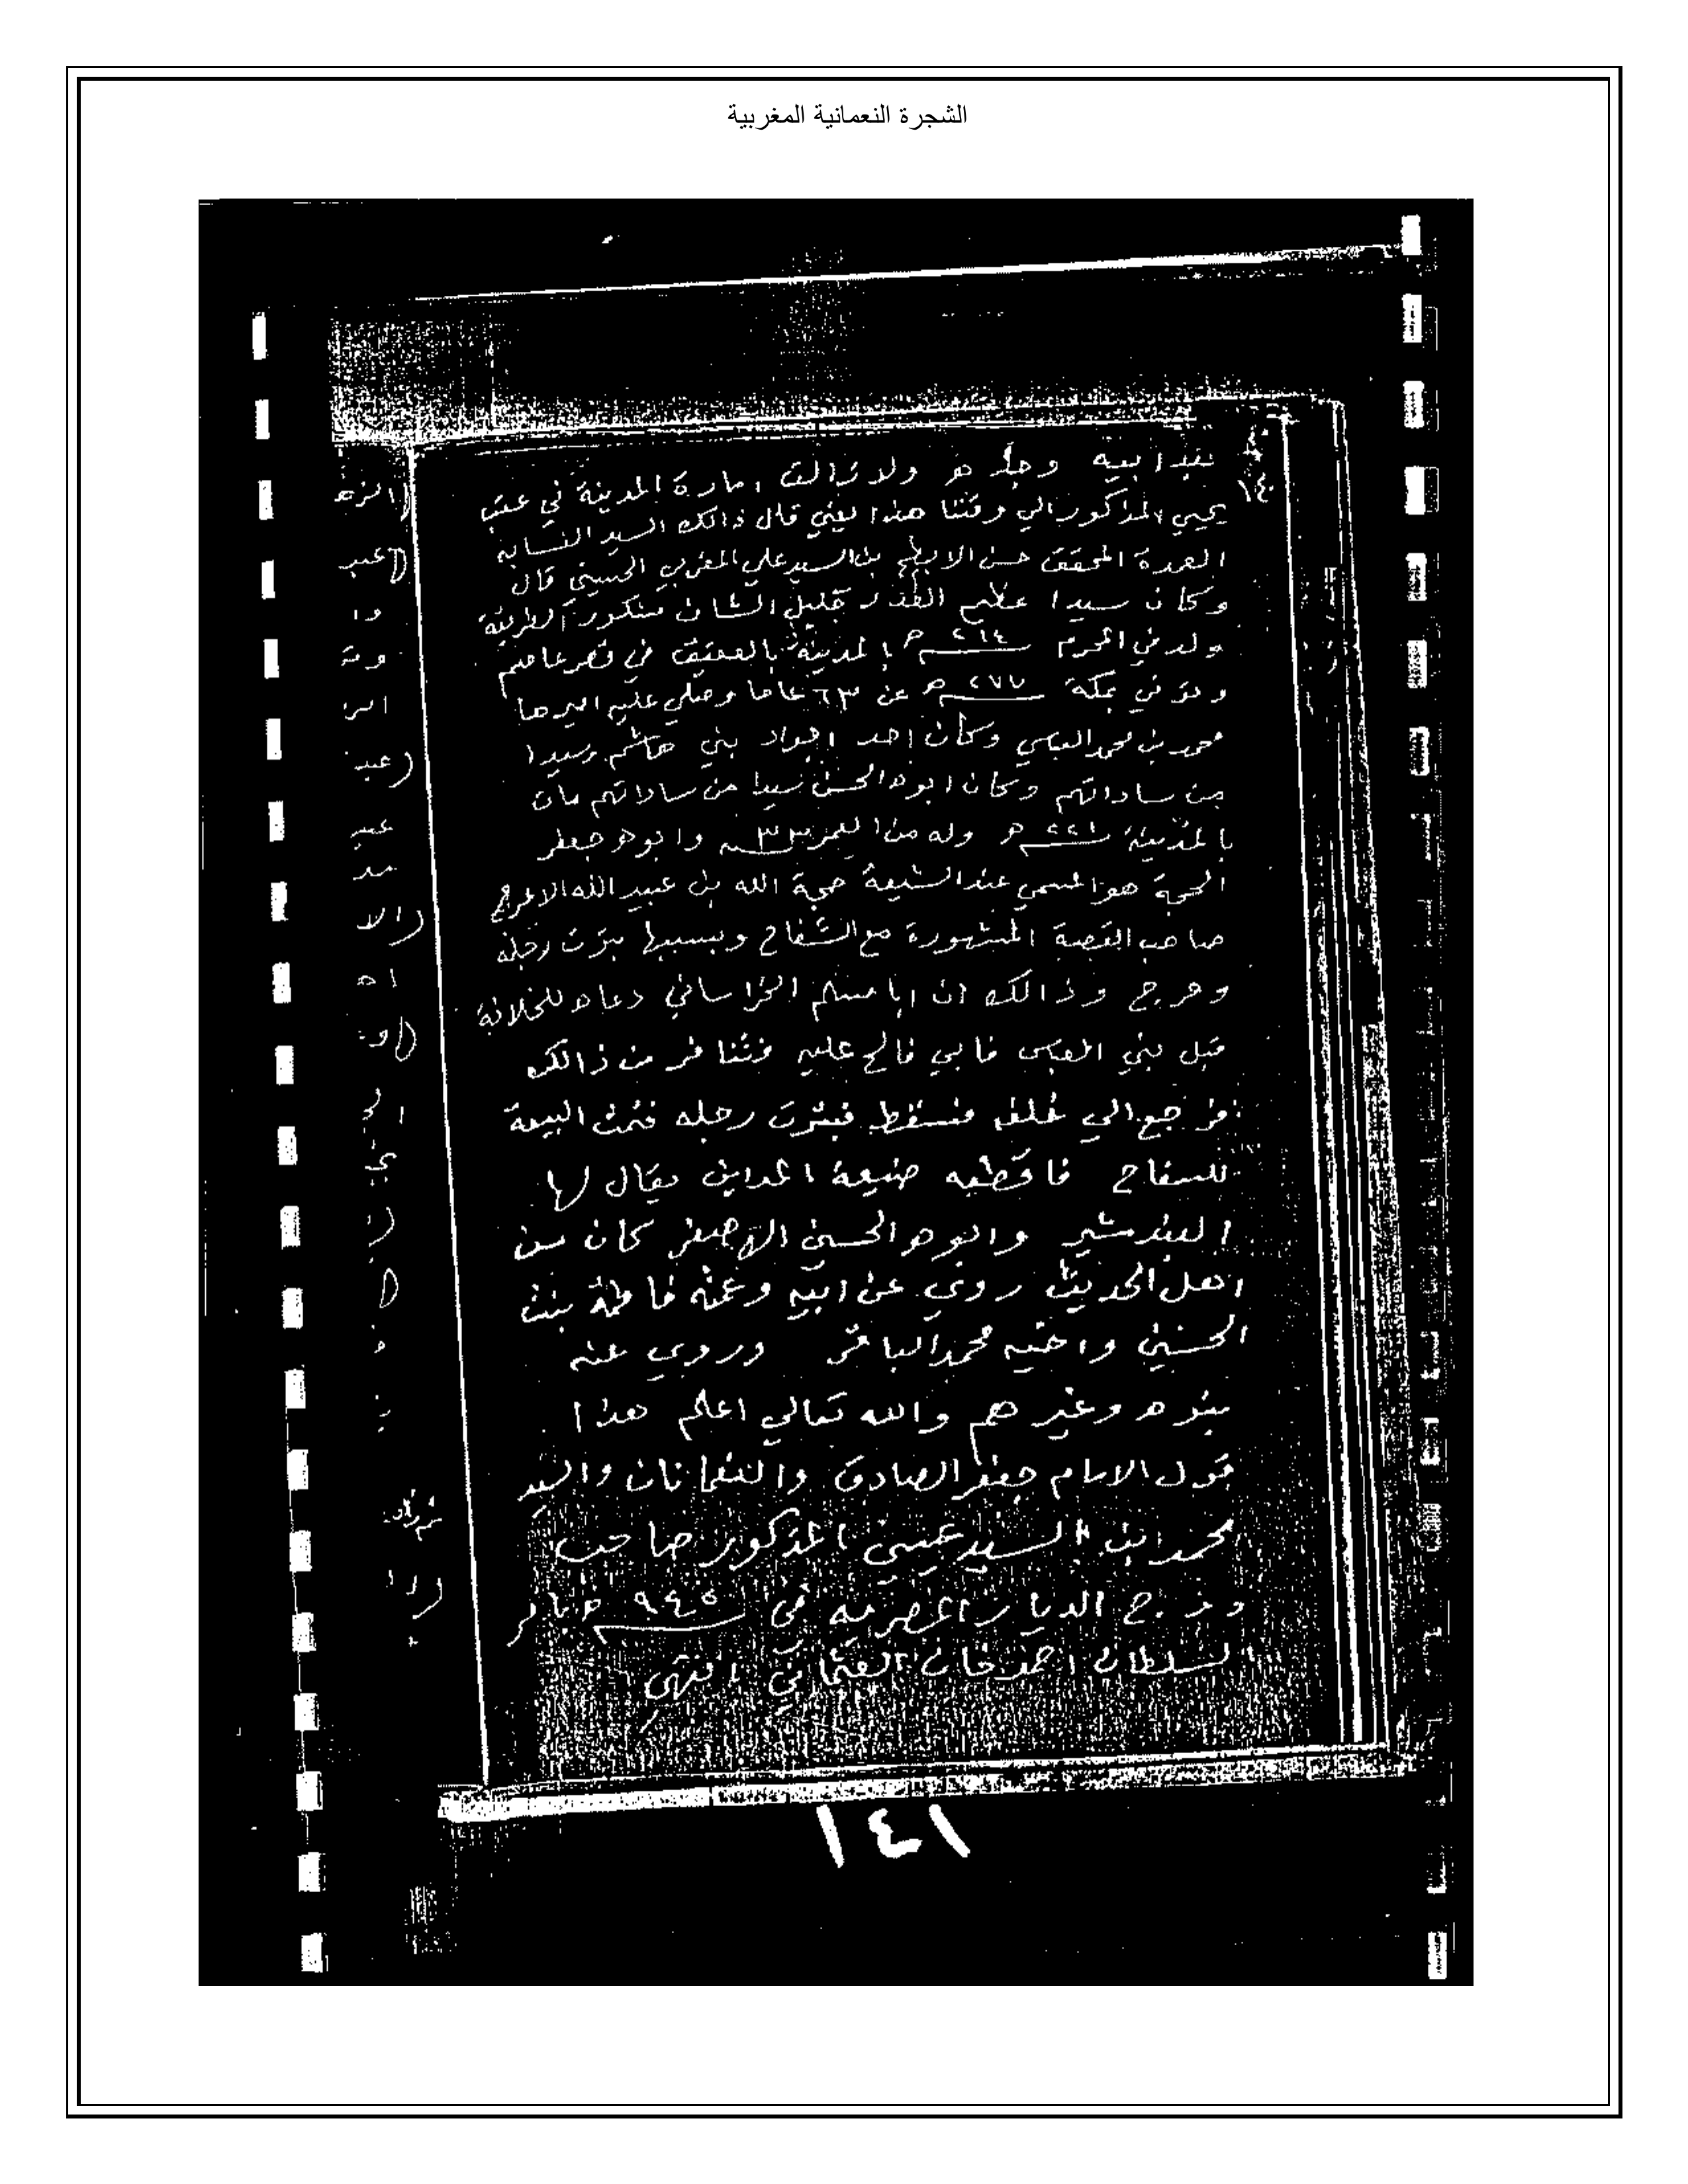 الشجرة النعمانية المغربية
١٤٠
ابيه وجده ولا زالت امارة المدينة في عقب
يحيي المذكور الي وقتنا هذا يعني قال ذالك السيد النسابه
العمدة المحقق حسن الابطح بن السيد علي المغربي الحسيني قال
وكان سيدا عظيم القدر جليل الشان مشكور الطريقة
ولد في المحرم ٢١٤ ه بالمدينة بالعقيق في قصر عاصم
وتوفي بمكة ٢٧٧ ه عن ٦٣ عاما وصلي عليه اميرها
محمد بن محمد العباسي وكان احد اجواد بني هاشم وسيدا
من ساداتهم وكان ابوه الحسن سيدا من ساداتهم مات
بالمدينة ٢٢١ ه وله من العمر وابوه جعفر
الحجة هو المسمي عند الشيعة حجة الله بن عبيد الله الاعرج
صاحب القصة المشهورة مع السفاح وبسببها بترت رجله
وعرج وذالك ان ابا مسلم الخراساني دعاه للخلافة
قبل بني العباس فابي فالح عليه فتنافر من ذالك
فرجع الي خلف فسقط فبترت رجله فتمت البيعة
للسفاح فاقطعه ضيعة المداين يقال لها
البندمشير وابوه الحسين الاصغر كان من
اهل الحديث روي عن ابيه وعمته فاطمة بنت
الحسين واخيه محمد الباقر وروي عنه
بنوه وغيرهم والله تعالي اعلم هذا
قول الامام جعفر الصادق والنعمانان والسيد
محمد ابن السيد عيسي المذكور صاحب
الديار المصريه في ٩٤٥ ه
السلطان احمد خان العثماني انتهي
١٤١